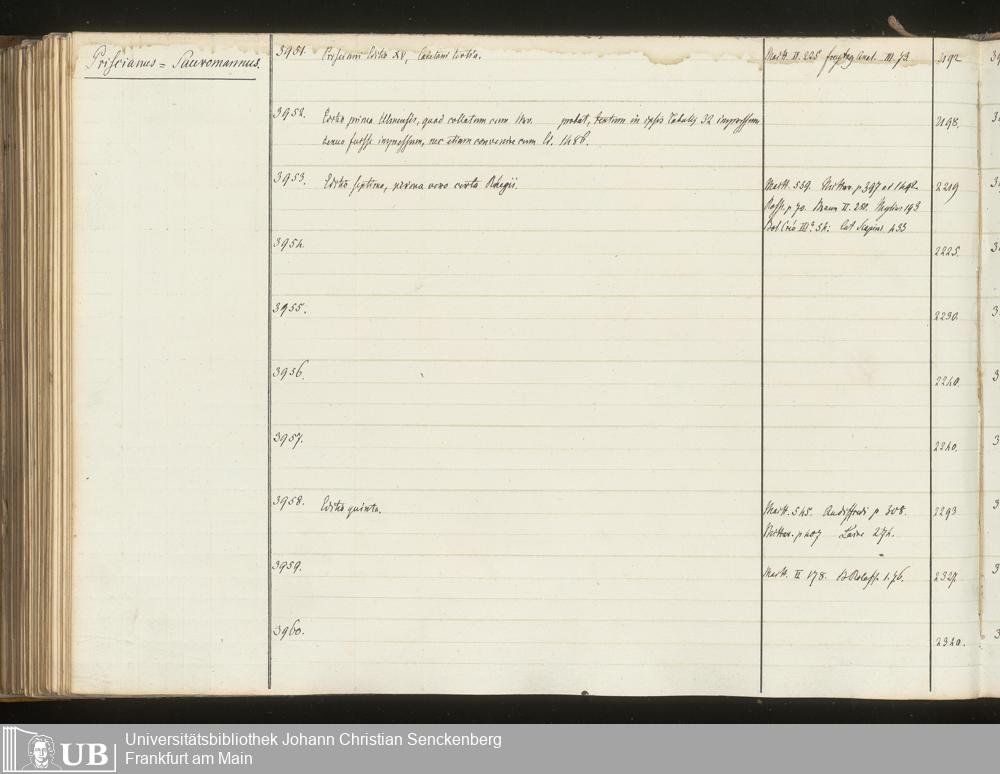 Priscianus = Sauromannus.
3951. Prisciani Editio XV, tertia. Maitt. II. 225 Anal. III. 73 2192
3952. Editio prima Ulmensis, quod collatum cum Nro. probat, textum in ipsis Tabulis 32 impressum 2198.
denuo fuisse impressum, nec etiam convenire cum Ed. 1486.
3953. Editio septima, prima vero certa Rhegii. Maitt. 559. Mittar. p 397 et 2219
p 70. Braun II. 250. 193
III. 54: Cat 433
3954. 2225.
3955. 2230.
3956. 2240.
3957. 2240.
3958. Editio quinta. Maitt. 545. Audiffredi p 308. 2293
Mittar. p 407 Laire 274.
3959. Maitt. II 178. 2327.
3960. 2340.
UB
Universitätsbibliothek Johann Christian Senckenberg
Frankfurt am Main